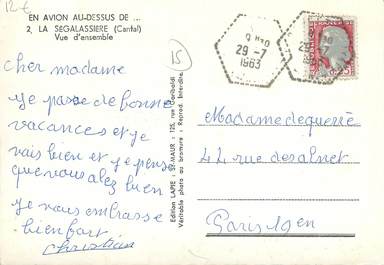 12€
EN AVION AU-DESSUS DE ...
2, LA SEGALASSIERE (Cantal)
Vue d'ensemble
15
cher madame
je passe de bonne
vacances et je
vais bien et je pense
que vous alez bien
je vous embrasse
bien fort
christian
Edition LAPIE - ST-MAUR : 125, rue Garibaldi
Véritable photo au bromure - Reprod. Interdite.
9 H30
29-7
1963
29-7
1963
Madame deguerre
44 rue desalnet
Paris 19en